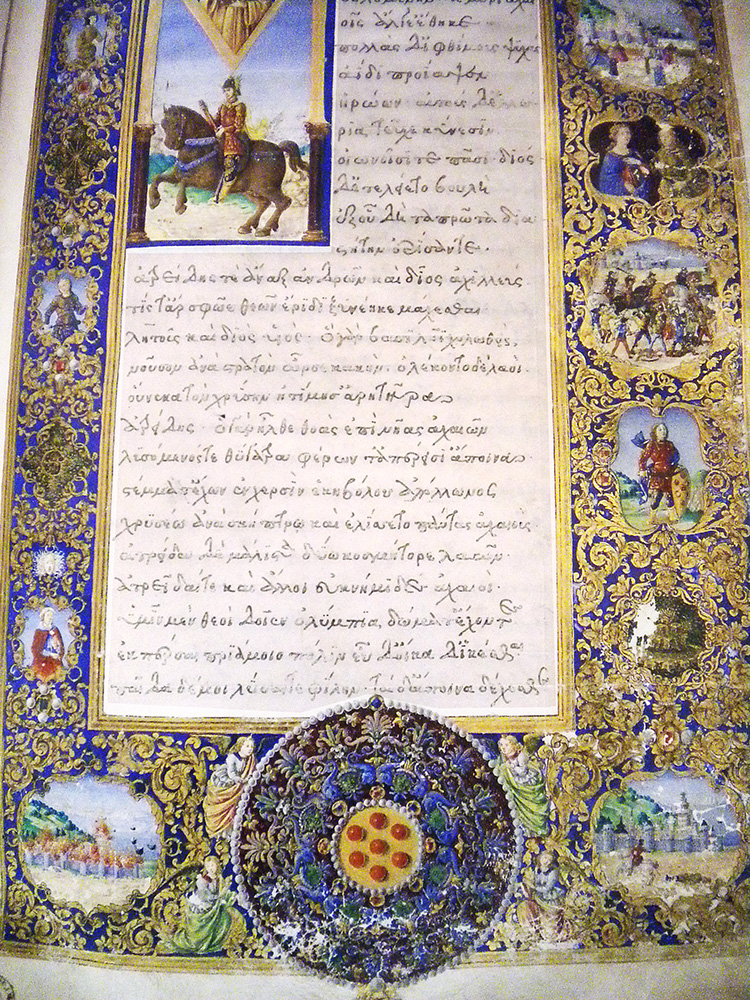 οις ἄλγε ἔθηκε
πολλὰς δ' ἰφθίμους ψυχὰς
ἄϊδι προΐαψεν
ἡρώων· αὐτοὺς δὲ ἑλώ
ρια τεῦχε κύνεσσιν
οἰωνοῖσί τε πᾶσι διὸς
δ' ἐτελείετο βουλὴ
ἐξ οὗ δὴ τὰ πρῶτα δια
στήτην ἐρίσαντε·
ἀτρείδης τε ἄναξ ἀνδρῶν καὶ δῖος ἀχιλλεύς·
τίς τ' ἄρ σφωε θεῶν ἔριδι ξυνέηκε μάχεσθαι
λητοῦς καὶ διὸς υἱός· ὁ γὰρ βασιλῆϊ χολωθεὶς,
νοῦσον ἀνὰ στρατὸν ὦρσε κακήν· ὀλέκοντο δὲ λαοί·
οὕνεκα τὸν χρύσην ἠτίμησ' ἀρητῆρα
ἀτρείδης· ὁ γὰρ ἦλθε θοὰς ἐπὶ νῆας ἀχαιῶν
λυσόμενός τε θύγατρα φέρων τ' ἀπερείσι ἄποινα
στέμματ' ἔχων ἐν χερσὶν ἑκηβόλου ἀπόλλωνος
χρυσέω ἀνὰ σκήπτρω καὶ ἐλίσσετο πάντας ἀχαιοὺς
ἀτρείδα δὲ μάλιστα δύω κοσμήτορε λαῶν·
ἀτρεῖδαί τε καὶ ἄλλοι εὐκνήμιδες ἀχαιοί·
ὑμῖν μὲν θεοὶ δοῖεν ὀλύμπια δώματ' ἔχοντες
ἐκπέρσαι πριάμοιο πόλιν εὖ δ' οἴκαδ' ἱκέσθαι
παῖδα δέ μοι λύσαιτε φίλην· τὰ δ' ἄποινα δέχεσθε